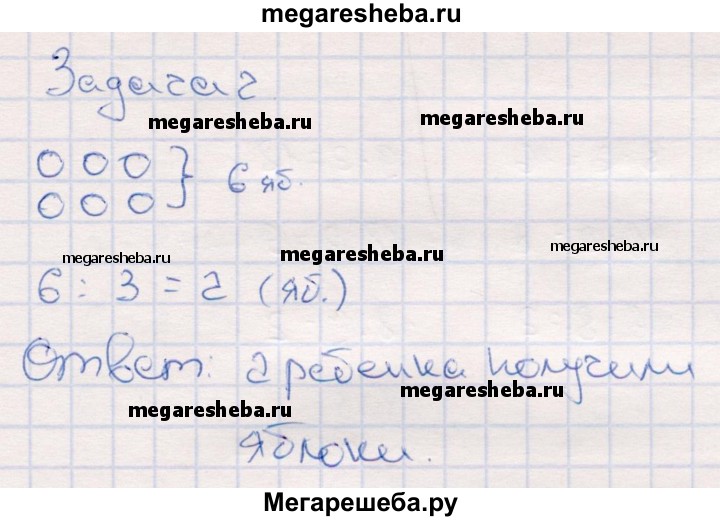 megaresheba.ru
Задача 2
megaresheba.ru megaresheba.ru
6 яб.
megaresheba.ru megaresheba.ru megaresheba.ru
6 : 3 = 2 (яб.)
Ответ: 2 ребенка получили
megaresheba.ru megaresheba.ru
яблоки.
Мегарешеба.ру